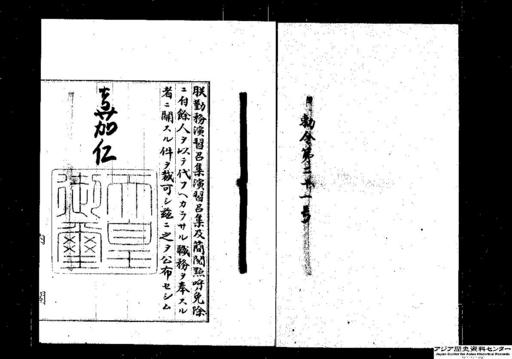 勅令第二十一号
朕勤務演習召集演習召集及簡閲點呼免除
ニ付餘人ヲ以テ代フヘカラサル職務ヲ奉スル
者ニ關スル件ヲ裁可シ茲ニ之ヲ公布セシム
嘉仁
天皇御璽
内閣
アジア歴史資料センター
Japan Center for Asian Historical Records